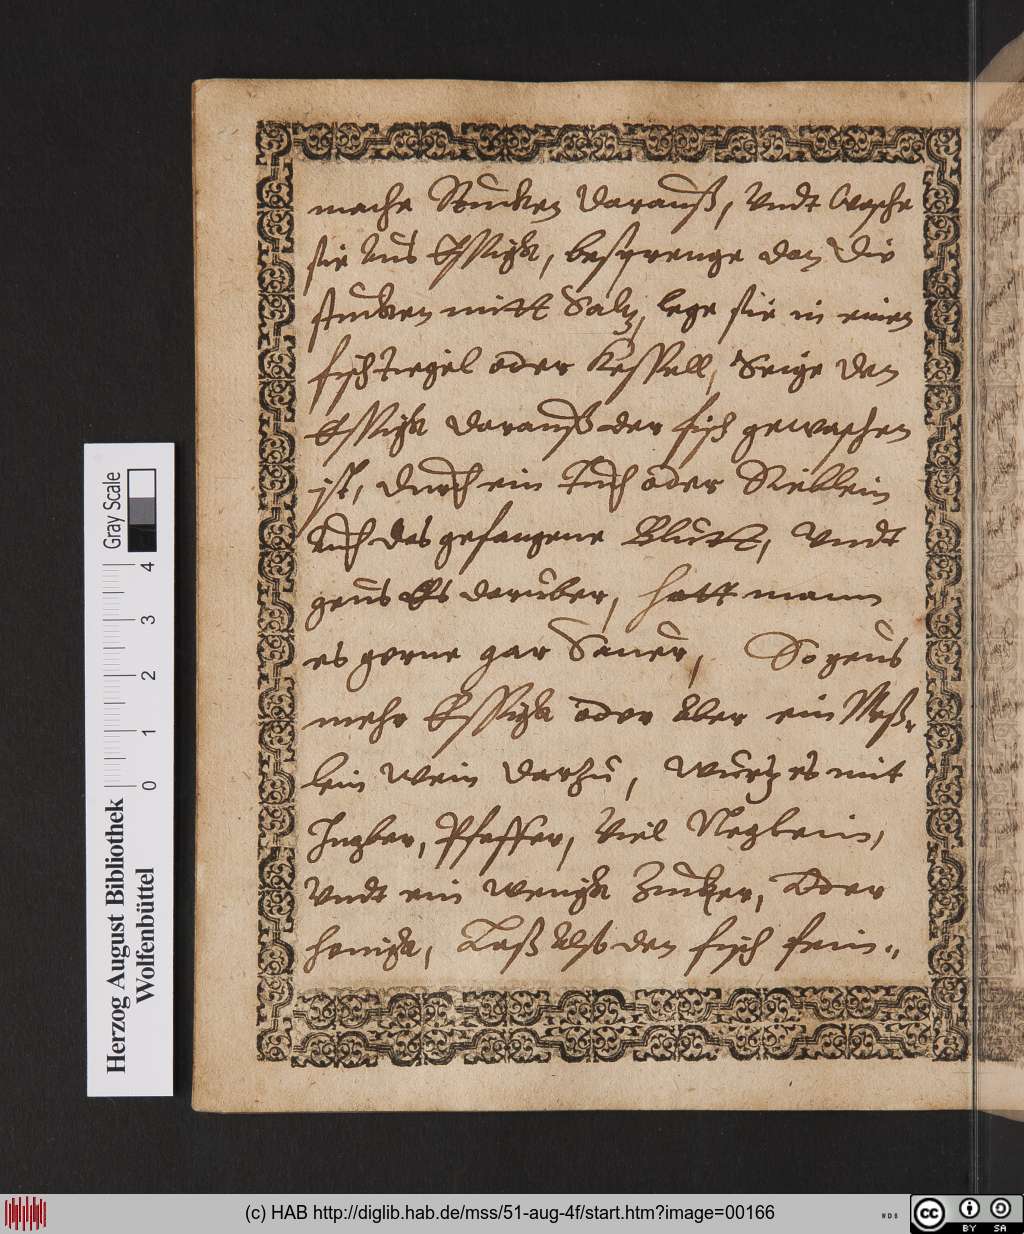 mache Stucken darauß, Undt Wasche
sie aus Essigk, besprenge dan die
stucken mitt Saltz, lege sie in einen
fischtiegel oder Kessell, Seige den
Essigk darauß der fisch gewaschen
ist, durch ein Tuch oder Sieblein
auch das gefangene Blutt, Undt
geus Es darüber, hatt mann
es gerne gar Sauer, So geus
mehr Essigk oder aber ein Meß-
lein Wein darzu, Wurtz es mit
Ingber, Pfeffer, Viel Neglein,
Undt ein wenigk Zucker, Oder
honigk, Laß also den fisch fein
Gray Scale
0 1 2 3 4
Herzog August Bibliothek
Wolfenbüttel
(c) HAB http://diglib.hab.de/mss/51-aug-4f/start.htm?image=00166
WDB
cc BY SA